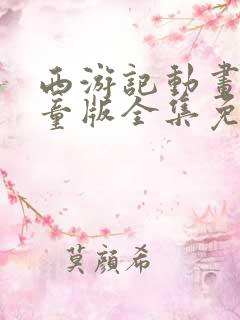 西游記動畫
童版全集免
莫顏希